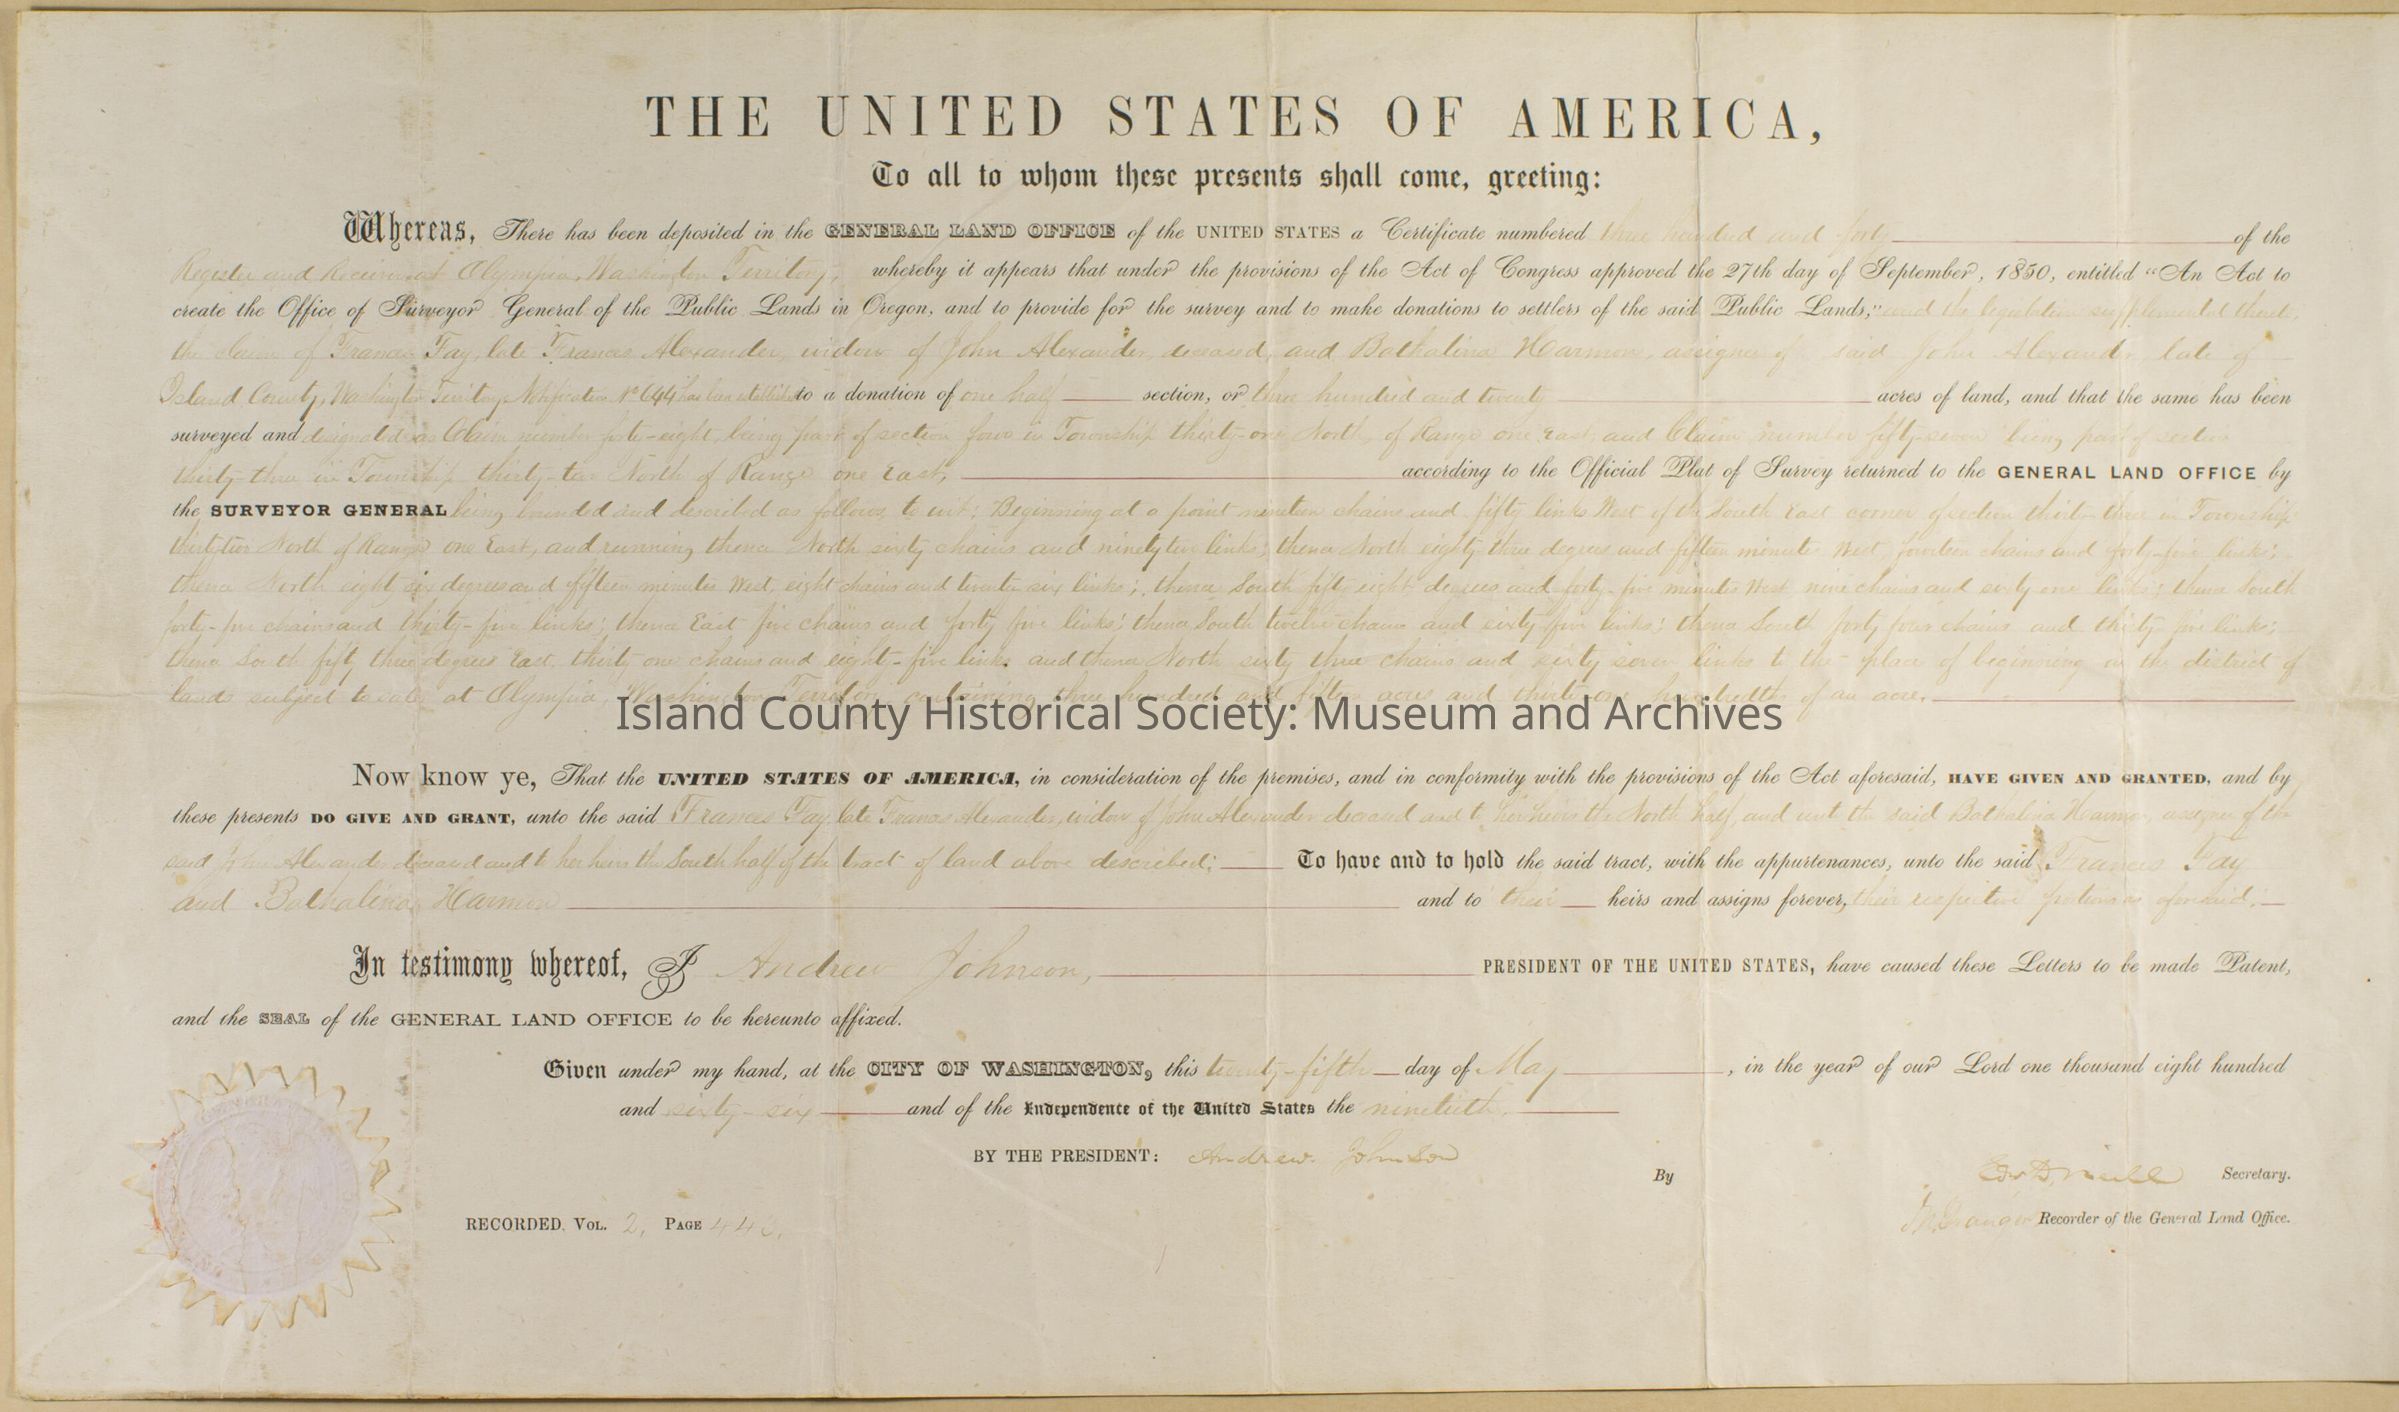 THE UNITED STATES OF AMERICA,
To all to whom these presents shall come, greeting:
Whereas, There has been deposited in the GENERAL LAND OFFICE of the UNITED STATES a Certificate numbered three hundred and forty of the
Register and Receiver at Olympia, Washington Territory, whereby it appears that under the provisions of the Act of Congress approved the 27th day of September, 1850, entitled "An Act to
create the Office of Surveyor General of the Public Lands in Oregon, and to provide for the survey and to make donations to settlers of the said Public Lands," and the legislation supplemental thereto,
the claim of Frances Fay, late Frances Alexander, widow of John Alexander, deceased, and Bathalina Harmon, assignee of said John Alexander, late of
Island County, Washington Territory, Notification No 644 has been established to a donation of one half section, or three hundred and twenty acres of land, and that the same has been
surveyed and designated as Claim number forty-eight, being part of section four in Township thirty-one North, of Range one East, and Claim number fifty-seven being part of section
thirty-three in Township thirty-two North of Range one East, according to the Official Plat of Survey returned to the GENERAL LAND OFFICE by
the SURVEYOR GENERAL being bounded and described as follows, to wit: Beginning at a point nineteen chains and fifty links West of the South East corner of section thirty-three in Township
thirty-two North of Range one East, and running thence North sixty chains and ninety two links; thence North eighty-three degrees and fifteen minutes West, fourteen chains and forty-five links;
thence North eighty six degrees and fifteen minutes West, eight chains and twenty six links; thence South fifty eight degrees and forty-five minutes West nine chains and sixty one links; thence South
forty-five chains and thirty-five links; thence East five chains and forty five links; thence South twelve chains and sixty five links; thence South forty four chains and thirty five links;
thence South fifty three degrees East, thirty one chains and eighty-five links and thence North sixty three chains and sixty seven links to the place of beginning in the district of
lands subject to sale at Olympia, Washington Territory containing three hundred and fifteen acres and thirty-one hundredths of an acre.
Island County Historical Society: Museum and Archives
Now know ye, That the UNITED STATES OF AMERICA, in consideration of the premises, and in conformity with the provisions of the Act aforesaid, HAVE GIVEN AND GRANTED, and by
these presents DO GIVE AND GRANT, unto the said Frances Fay, late Frances Alexander, widow of John Alexander deceased and to her heirs the North half, and unto the said Bathalina Harmon, assignee of the
said John Alexander deceased and to her heirs the South half of the tract of land above described; To have and to hold the said tract, with the appurtenances, unto the said Frances Fay
and Bathalina Harmon and to their heirs and assigns forever, their respective portions as aforesaid.
In testimony whereof, I Andrew Johnson, PRESIDENT OF THE UNITED STATES, have caused these Letters to be made Patent,
and the SEAL of the GENERAL LAND OFFICE to be hereunto affixed.
Given under my hand, at the CITY OF WASHINGTON, this twenty-fifth day of May, in the year of our Lord one thousand eight hundred
and sixty-six and of the Independence of the United States the ninetieth.
BY THE PRESIDENT: Andrew Johnson
By Edw D. Neill Secretary.
RECORDED, VOL. 2, PAGE 443.
Granger Recorder of the General Land Office.